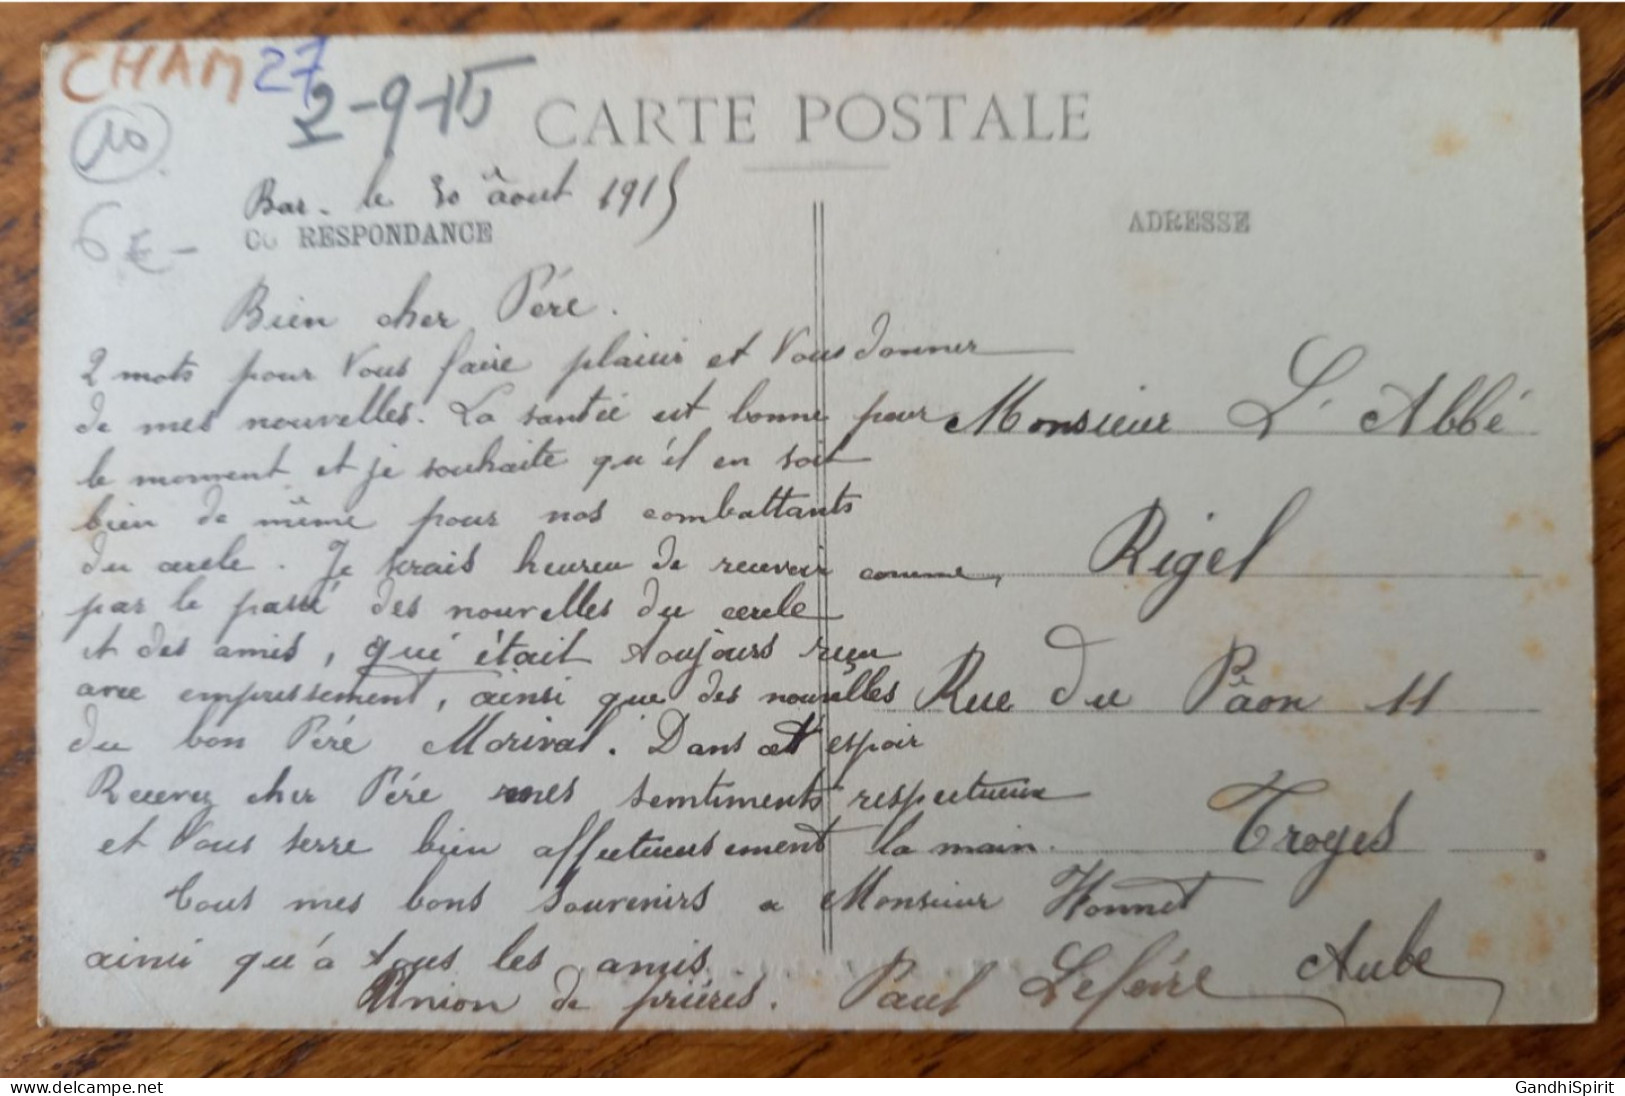 CHAM 27
2-9-15
10
6€-
CARTE POSTALE
Bar. le 30 âout 1915
CO RESPONDANCE
ADRESSE
Bien cher Pére.
2 mots pour Vous faire plaisir et Vous donner
de mes nouvelles. La santée est bonne pour
le moment et je souhaite qu'il en soit
bien de même pour nos combattants
du cercle. Je serais heureu de recevoir comme,
par le passé des nouvelles du cercle
et des amis, qui était toujours reçu
avec empressement, ainsi que des nouvelles
du bon Péré Morival. Dans cet espoir
Recevez cher Pére mes sentiments respectueux
et Vous serre bien affectueusement la main.
Tous mes bons Souvenirs a Monsieur Honnet
ainsi qu'à tous les amis
Union de priéres. Paul Lefévre
Monsieur L'Abbé
Rigel
Rue du Pâon 11
Troyes
Aube
delcampe.net
GandhiSpirit